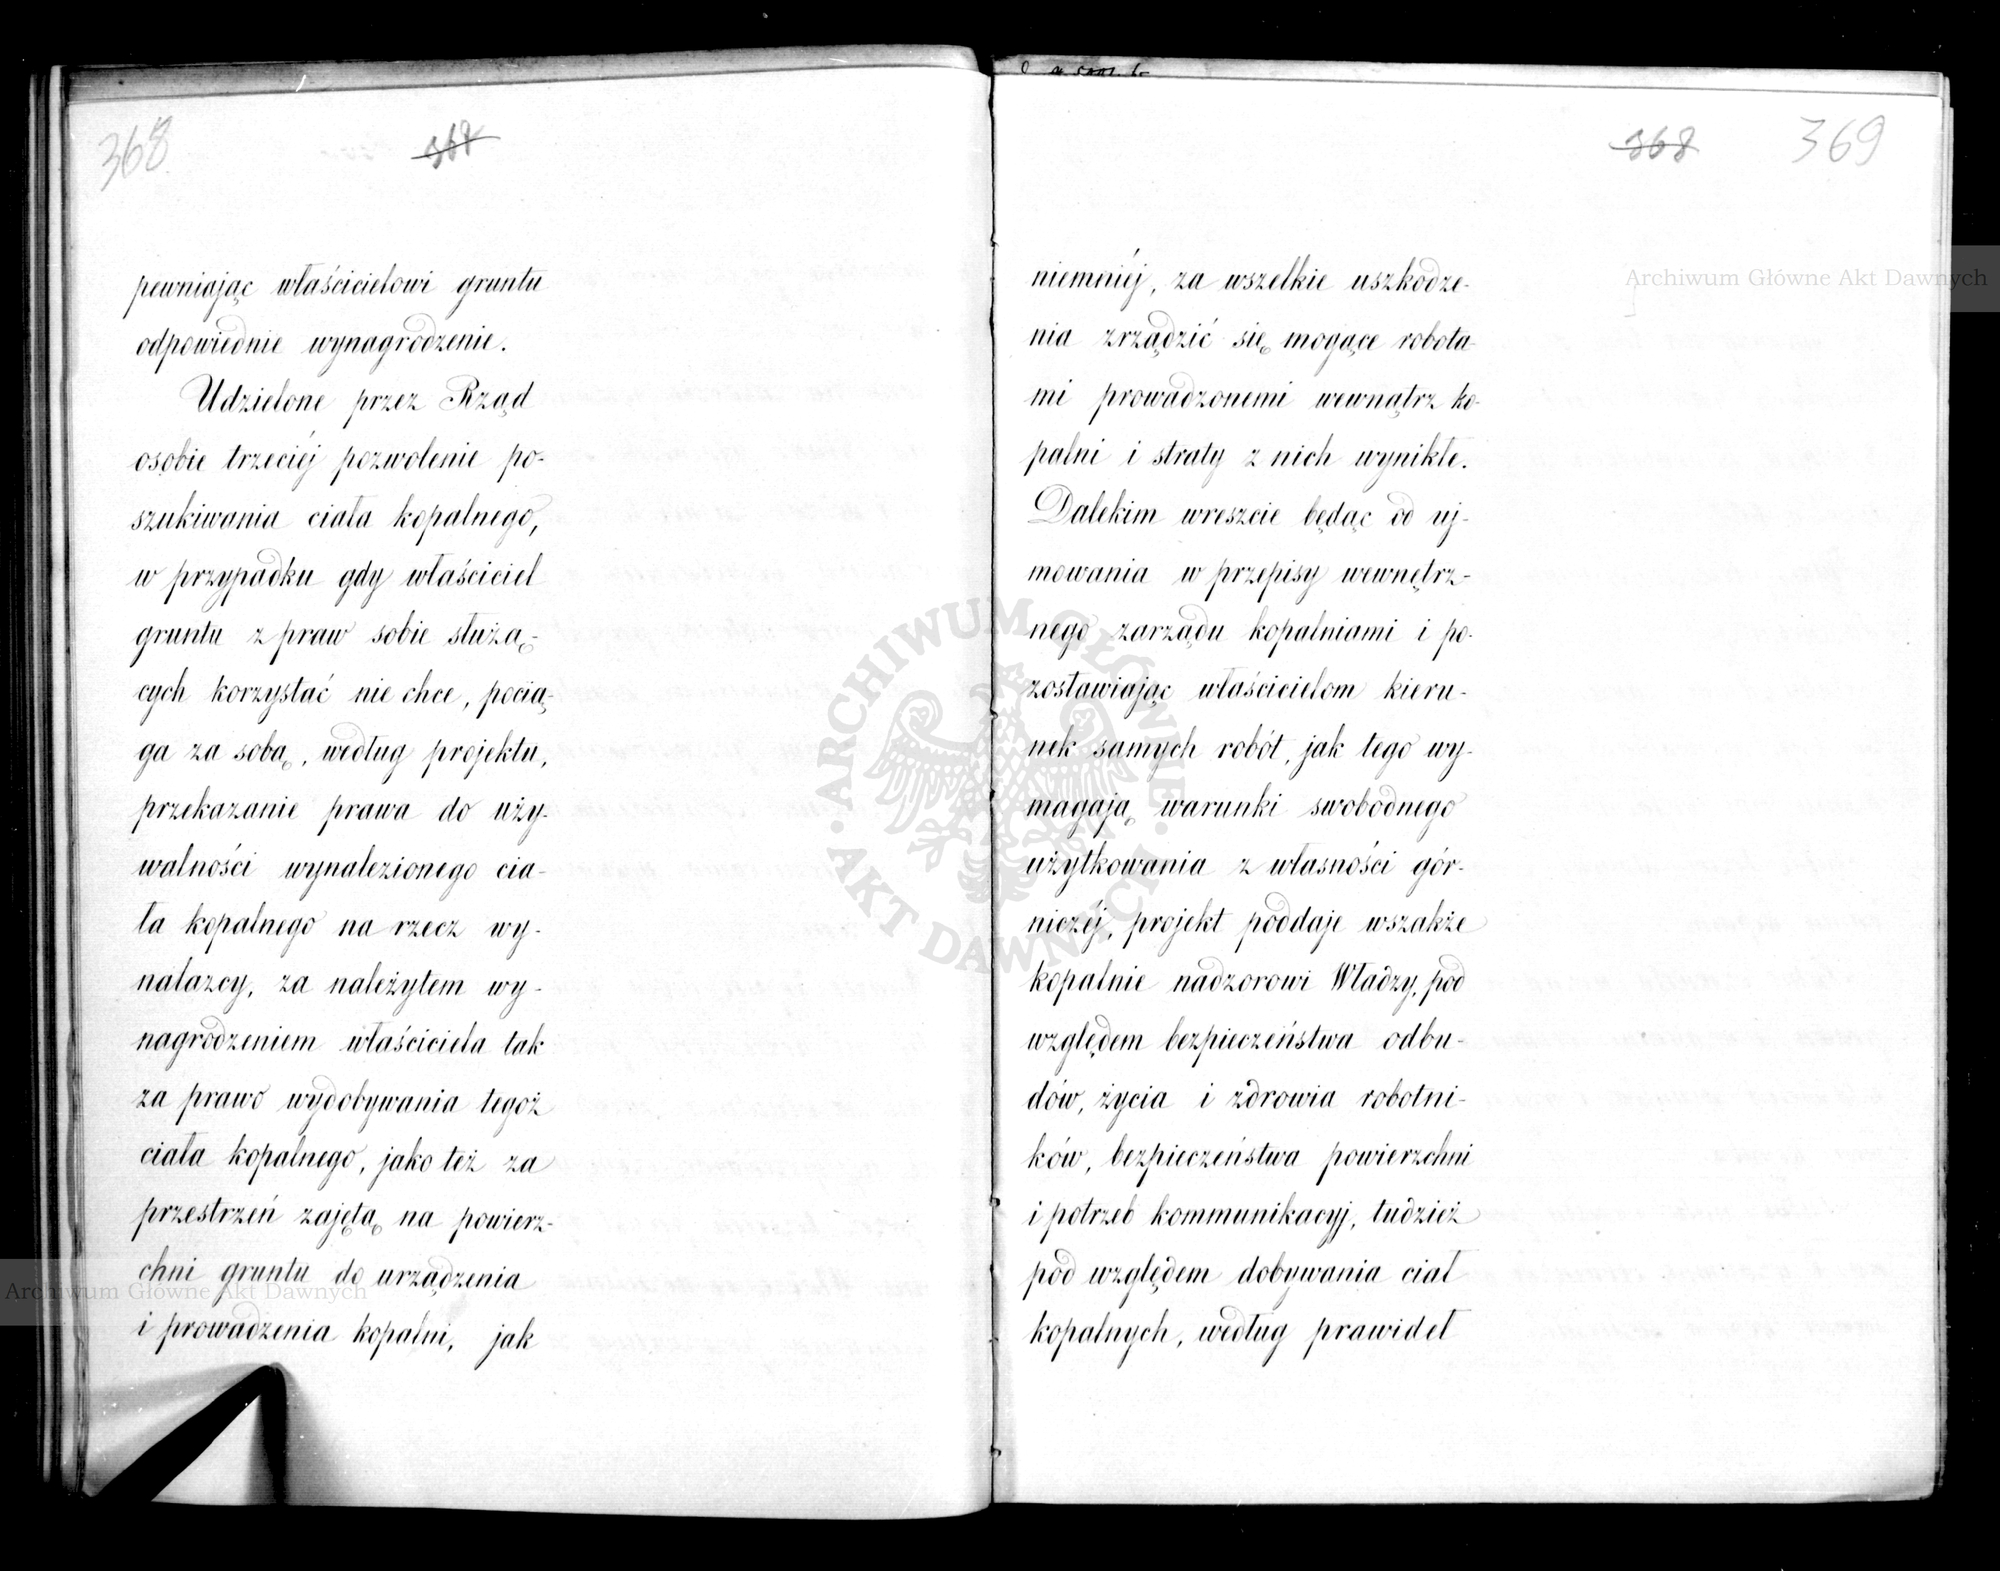 368
367
pewniając właścicielowi gruntu
odpowiednie wynagrodzenie.
Udzielone przez Rząd
osobie trzeciéj pozwolenie po-
szukiwania ciała kopalnego,
w przypadku gdy właściciel
gruntu z praw sobie służą-
cych korzystać nie chce, pocią-
ga za sobą, według projektu,
przekazanie prawa do uży-
walności wynalezionego cia-
ła kopalnego na rzecz wy-
nalazcy, za należytem wy-
nagrodzeniem właściciela tak
za prawo wydobywania tegoż
ciała kopalnego, jako też za
przestrzeń zajętą na powierz-
chni gruntu do urządzenia
i prowadzenia kopalni, jak
368
369
niemniéj, za wszelkie uszkodze-
nia zrządzić się mogące robota-
mi prowadzonemi wewnątrz ko-
palni i straty z nich wynikłe.
Dalekim wreszcie będąc od uj-
mowania w przepisy wewnętrz-
nego zarządu kopalniami i po-
zostawiając właścicielom kieru-
nek samych robót, jak tego wy-
magają warunki swobodnego
użytkowania z własności gór-
niczéj, projekt poddaje wszakże
kopalnie nadzorowi Władzy, pod
względem bezpieczeństwa odbu-
dów, życia i zdrowia robotni-
ków, bezpieczeństwa powierzchni
i potrzeb kommunikacyj, tudzież
pod względem dobywania ciał
kopalnych, według prawideł
Archiwum Główne Akt Dawnych
Archiwum Główne Akt Dawnych
ARCHIWUM GŁÓWNE AKT DAWNYCH